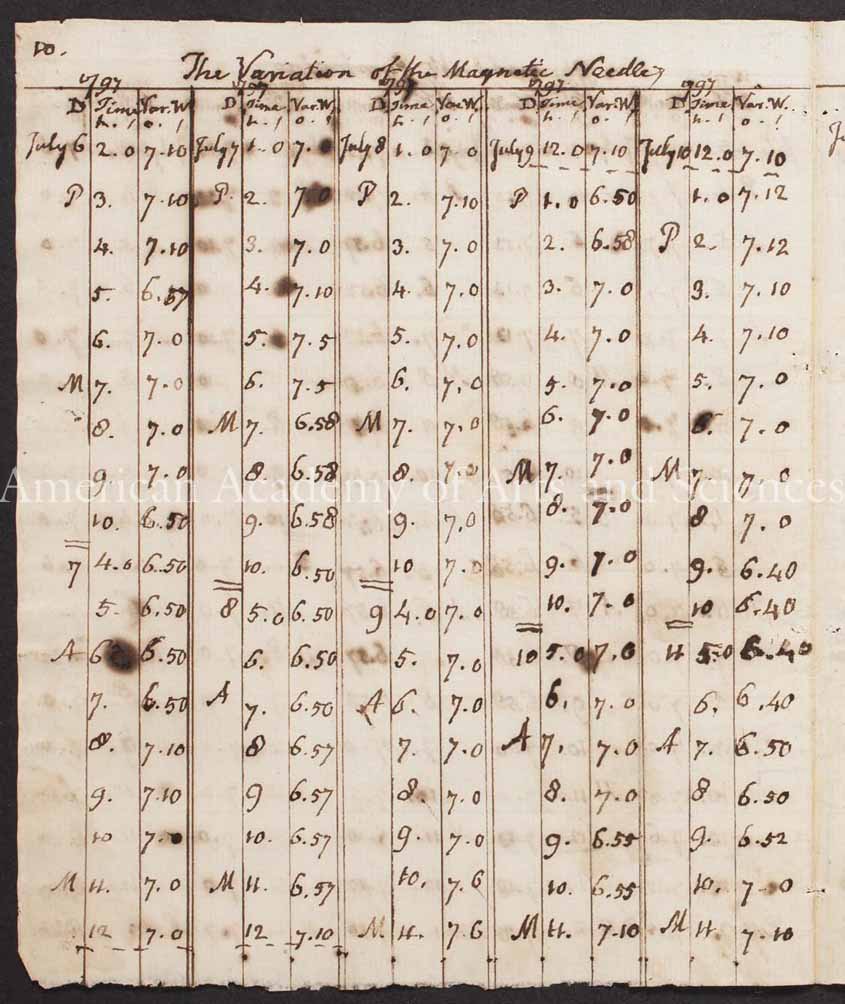 10.
The Variation of the Magnetic Needle,
1797 1797 1797 1797 1797
D Time Var.W. D Time Var.W. D Time Var.W. D Time Var.W. D Time Var.W.
h. ' o. ' h. ' o. ' h. ' o. ' h. ' o. ' h. ' o. '
July 6 2.0 7.10 July 7 1.0 7. July 8 1.0 7.0 July 9 12.0 7.10 July 10 12.0 7.10
P 3. 7.10 P. 2. 7.0 P 2. 7.10 P 1.0 6.50 1.0 7.12
4. 7.10 3. 7.0 3. 7.0 2. 6.58 P 2. 7.12
5. 6.57 4. 7.10 4. 7.0 3. 7.0 3. 7.10
6. 7.0 5. 7.5 5. 7.0 4. 7.0 4. 7.10
M 7. 7.0 6. 7.5 6. 7.0 5. 7.0 5. 7.0
8. 7.0 M 7. 6.58 M 7. 7.0 6. 7.0 6. 7.0
9. 7.0 8. 6.58 8. 7.0 M 7. 7.0 M 7. 7.0
American Academy of Arts and Sciences
10. 6.50 9. 6.58 9. 7.0 8. 7.0 8 7.0
7 4.0 6.50 10. 6.50 10 7.0 9. 7.0 9. 6.40
5. 6.50 8 5.0 6.50 9 4.0 7.0 10. 7.0 10 6.40
A 6 6.50 6. 6.50 5. 7.0 10 5.0 7.0 11 5.0 6.40
7. 6.50 A 7. 6.50 A 6. 7.0 6. 7.0 6. 6.40
8. 7.10 8 6.57 7. 7.0 A 7. 7.0 A 7. 6.50
9. 7.10 9 6.57 8. 7.0 8. 7.0 8 6.50
10 7.0 10. 6.57 9. 7.0 9. 6.55 9. 6.52
M 11. 7.0 M 11. 6.57 10. 7.6 10. 6.55 10. 7.0
12 7.0 12 7.10 M. 11. 7.6 M 11. 7.10 M 11. 7.10